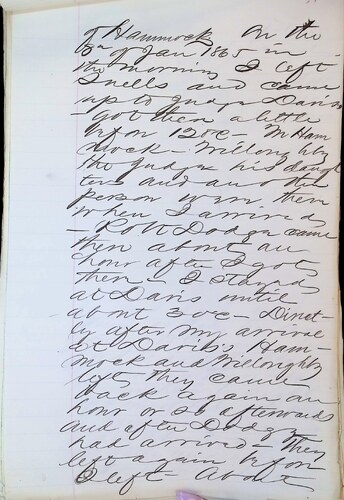 of Hammock On the
6th of Jan 1865 in
the morning I left
Snells and came
up to Judge Davis
- Got there a little
before 12 o'c - M Ham
mock - Willoughby
the Judge his daugh
ters and another
person were there
when I arrived
- Rott Dodge came
there about an
hour after I got
there - I stayed
at Davis until
about 3 o'c - Direct-
ly after my arrival
at Davis's Ham-
mock and Willoughby
left They came
back again an
hour or so afterwards
and after Dodge
had arrived - They
left again before
I left About